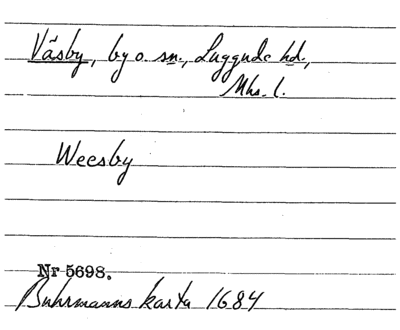 Väsby, by o. sn., Luggude hd.,
Mhs. l.
Weesby
Nr 5698.
Buhrmanns karta 1684